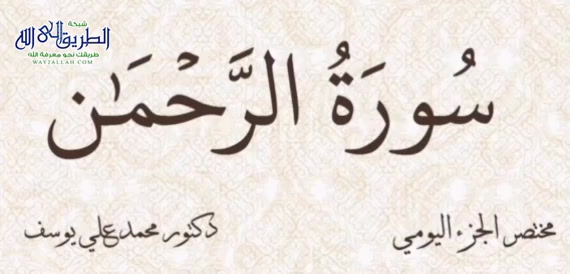 شبكة
الطريق إلى الله
طريقك نحو معرفة الله
WAYJALLAH.COM
سُورَةُ الرَّحْمَٰن
مختصر الجزء اليومي
دكتور محمد علي يوسف